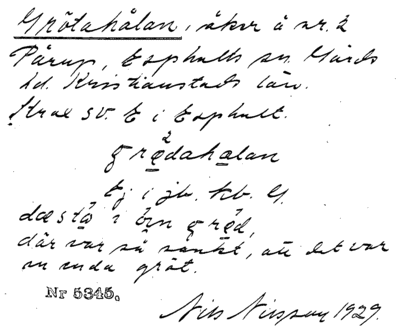 Grötahålan, åker å nr. 2
Pårup, Esphults sn. Gärds
hd. Kristianstads län.
Strax sv. E i Esphult.
grēdahalan
Ej i jb. kb. G.
dæ stå i ēn grēd,
där var så sankt, att det var
en enda gröt.
Nr 5345.
Nils Nilsson 1929.